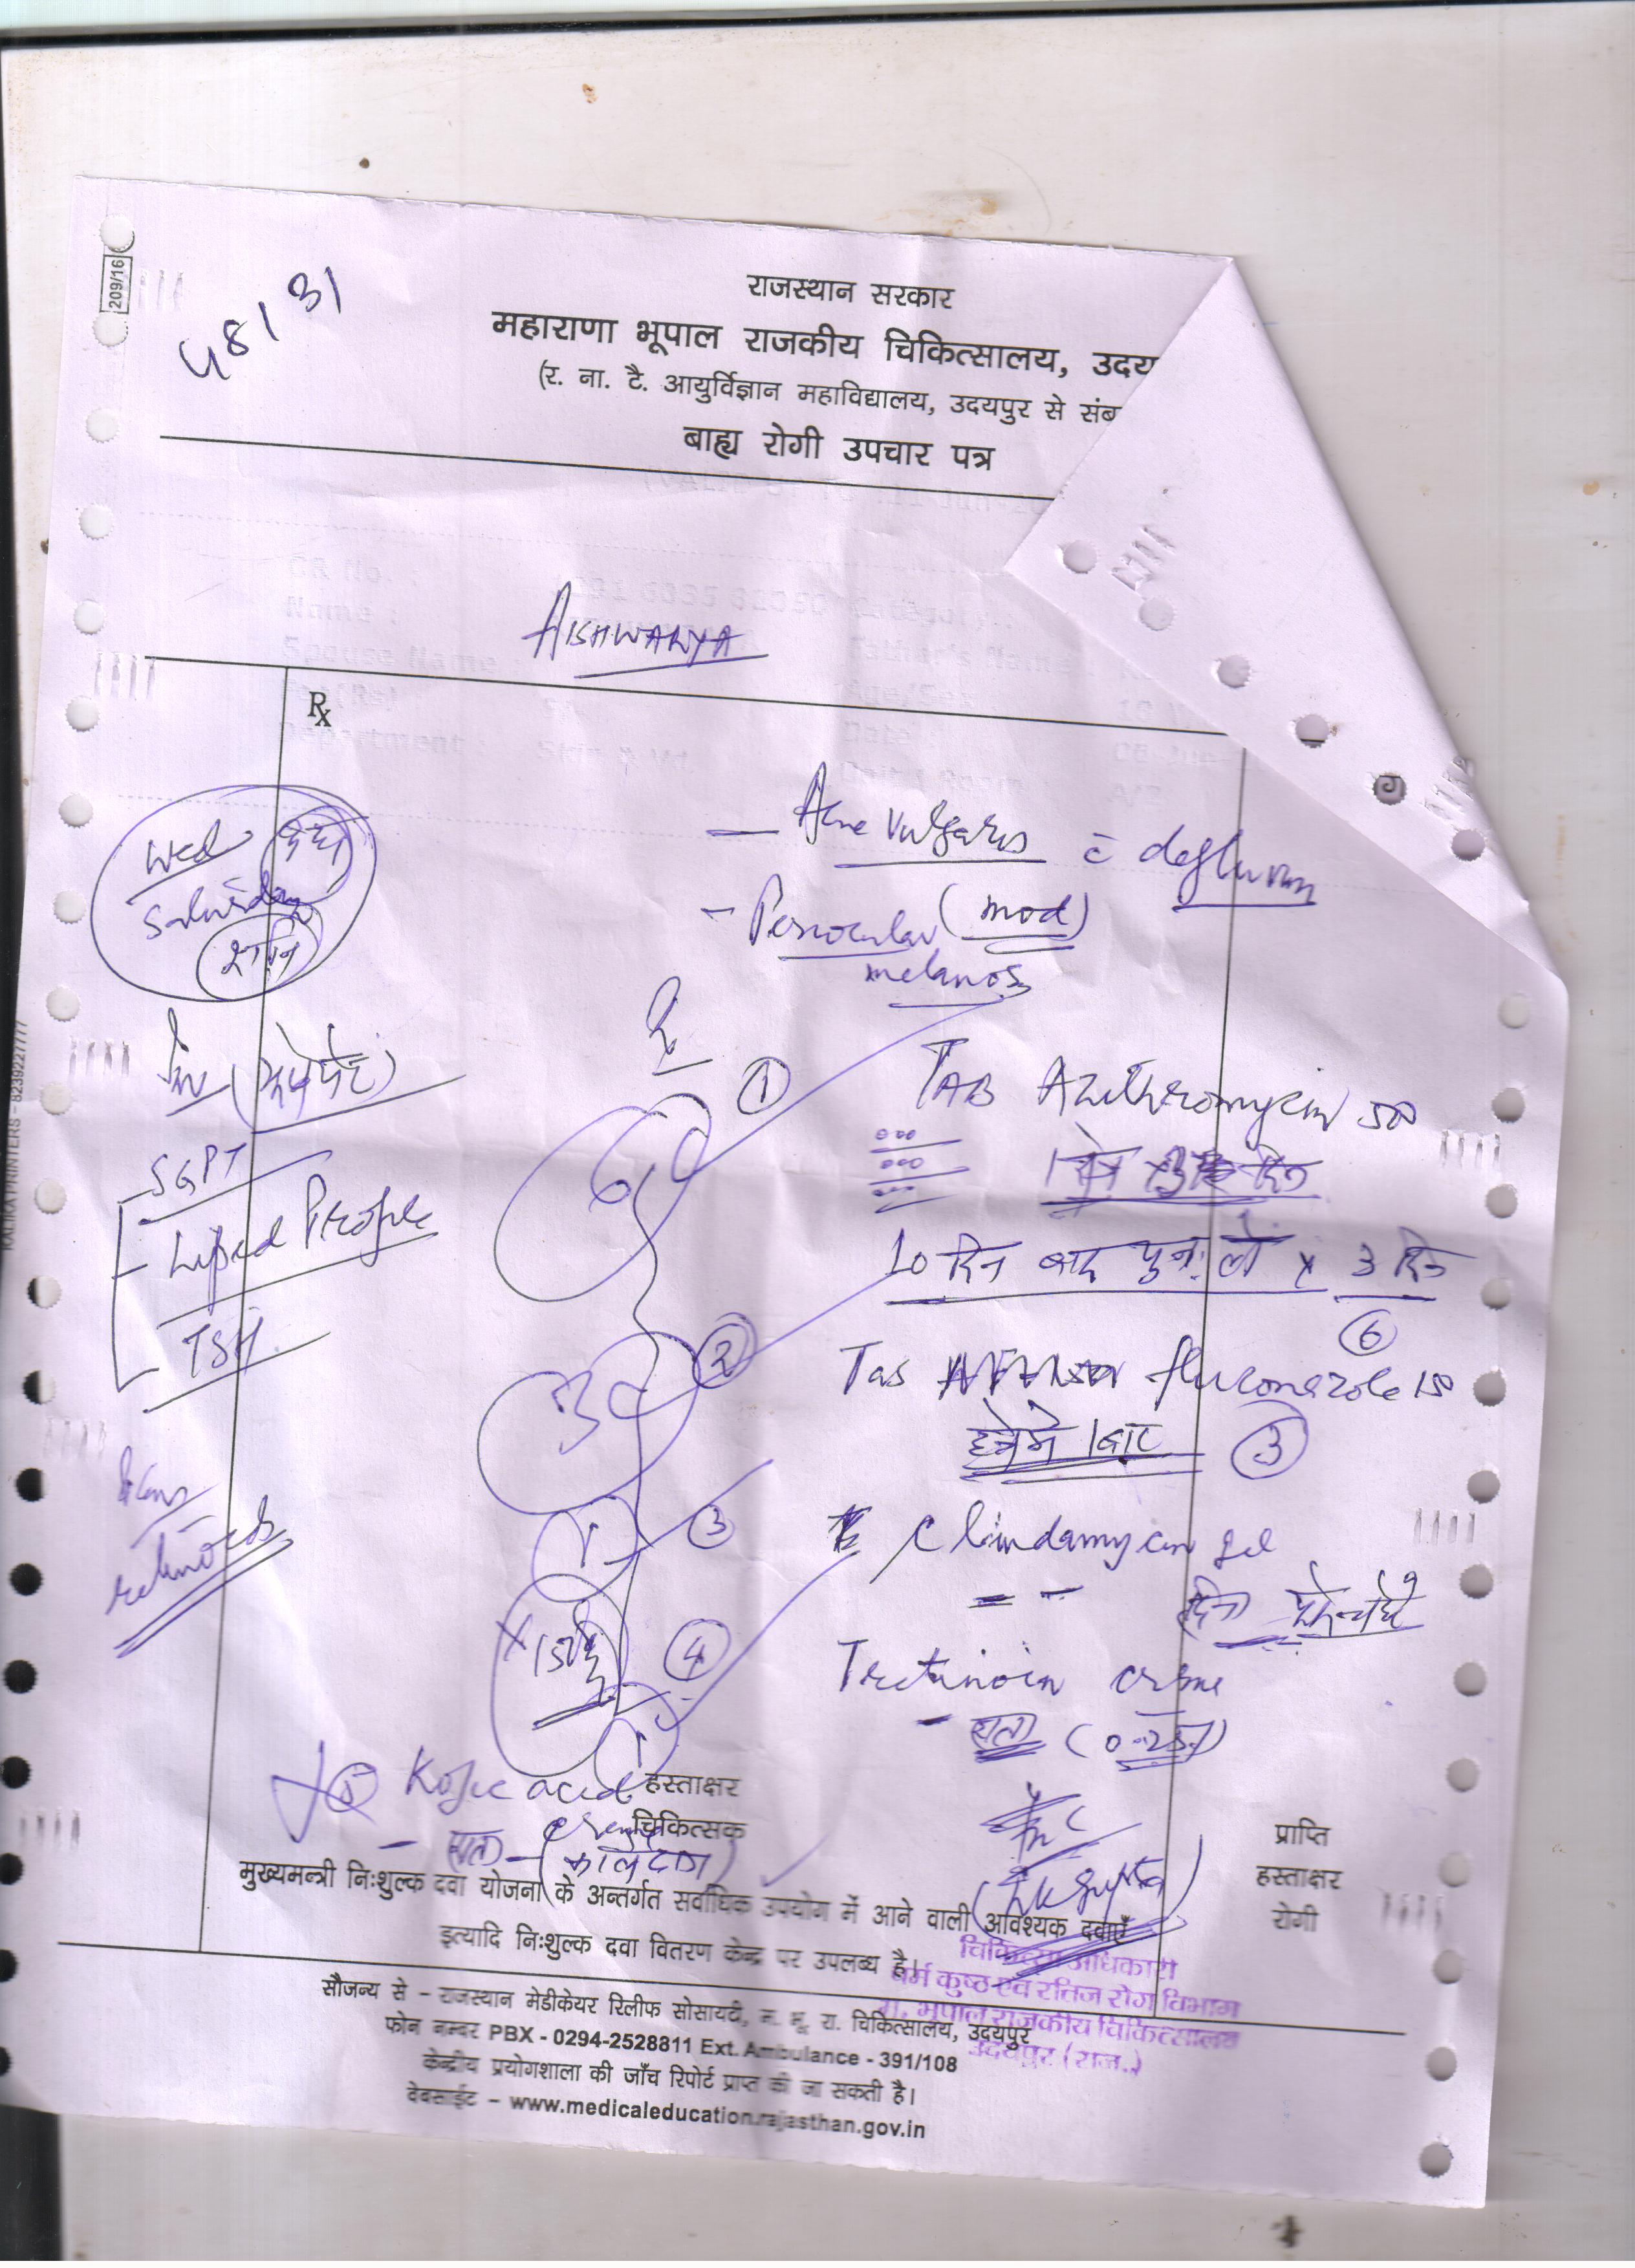 209/16
48131
राजस्थान सरकार
महाराणा भूपाल राजकीय चिकित्सालय, उदय
(र. ना. टै. आयुर्विज्ञान महाविद्यालय, उदयपुर से संब
बाह्य रोगी उपचार पत्र
CR No
Name :
Spouse Name
Father's Name
Age/Sex
Date
Department :
AISHWARYA
Rx
Wed
Saturday
शनि
— Acne Vulgaris c̄
- Periocular (mod)
melanosis
①
TAB Azithromycin 500
10 दिन बाद पुनः लो x 3 दिन
⑥
SGPT
Lipid Profile
TSH
②
Tab fluconazole 150
हफ्ते में 1 बार ③
③
Clindamycin gel
④
Tretinoin
retinoids
⑤ Kojic acid
हस्ताक्षर
चिकित्सक
प्राप्ति
हस्ताक्षर
रोगी
मुख्यमन्त्री निःशुल्क दवा योजना के अन्तर्गत सर्वाधिक उपयोग में आने वाली आवश्यक दवाएँ
इत्यादि निःशुल्क दवा वितरण केन्द्र पर उपलब्ध है।
चिकित्सा अधिकारी
चर्म कुष्ठ एवं रतिज रोग विभाग
म. भूपाल राजकीय चिकित्सालय
उदयपुर (राज.)
सौजन्य से - राजस्थान मेडीकेयर रिलीफ सोसायटी, म. भू. रा. चिकित्सालय, उदयपुर
फोन नम्बर PBX - 0294-2528811 Ext. Ambulance - 391/108
केन्द्रीय प्रयोगशाला की जाँच रिपोर्ट प्राप्त की जा सकती है।
वेबसाईट - www.medicaleducation.rajasthan.gov.in
KALIKA PRINTERS - 8239227777